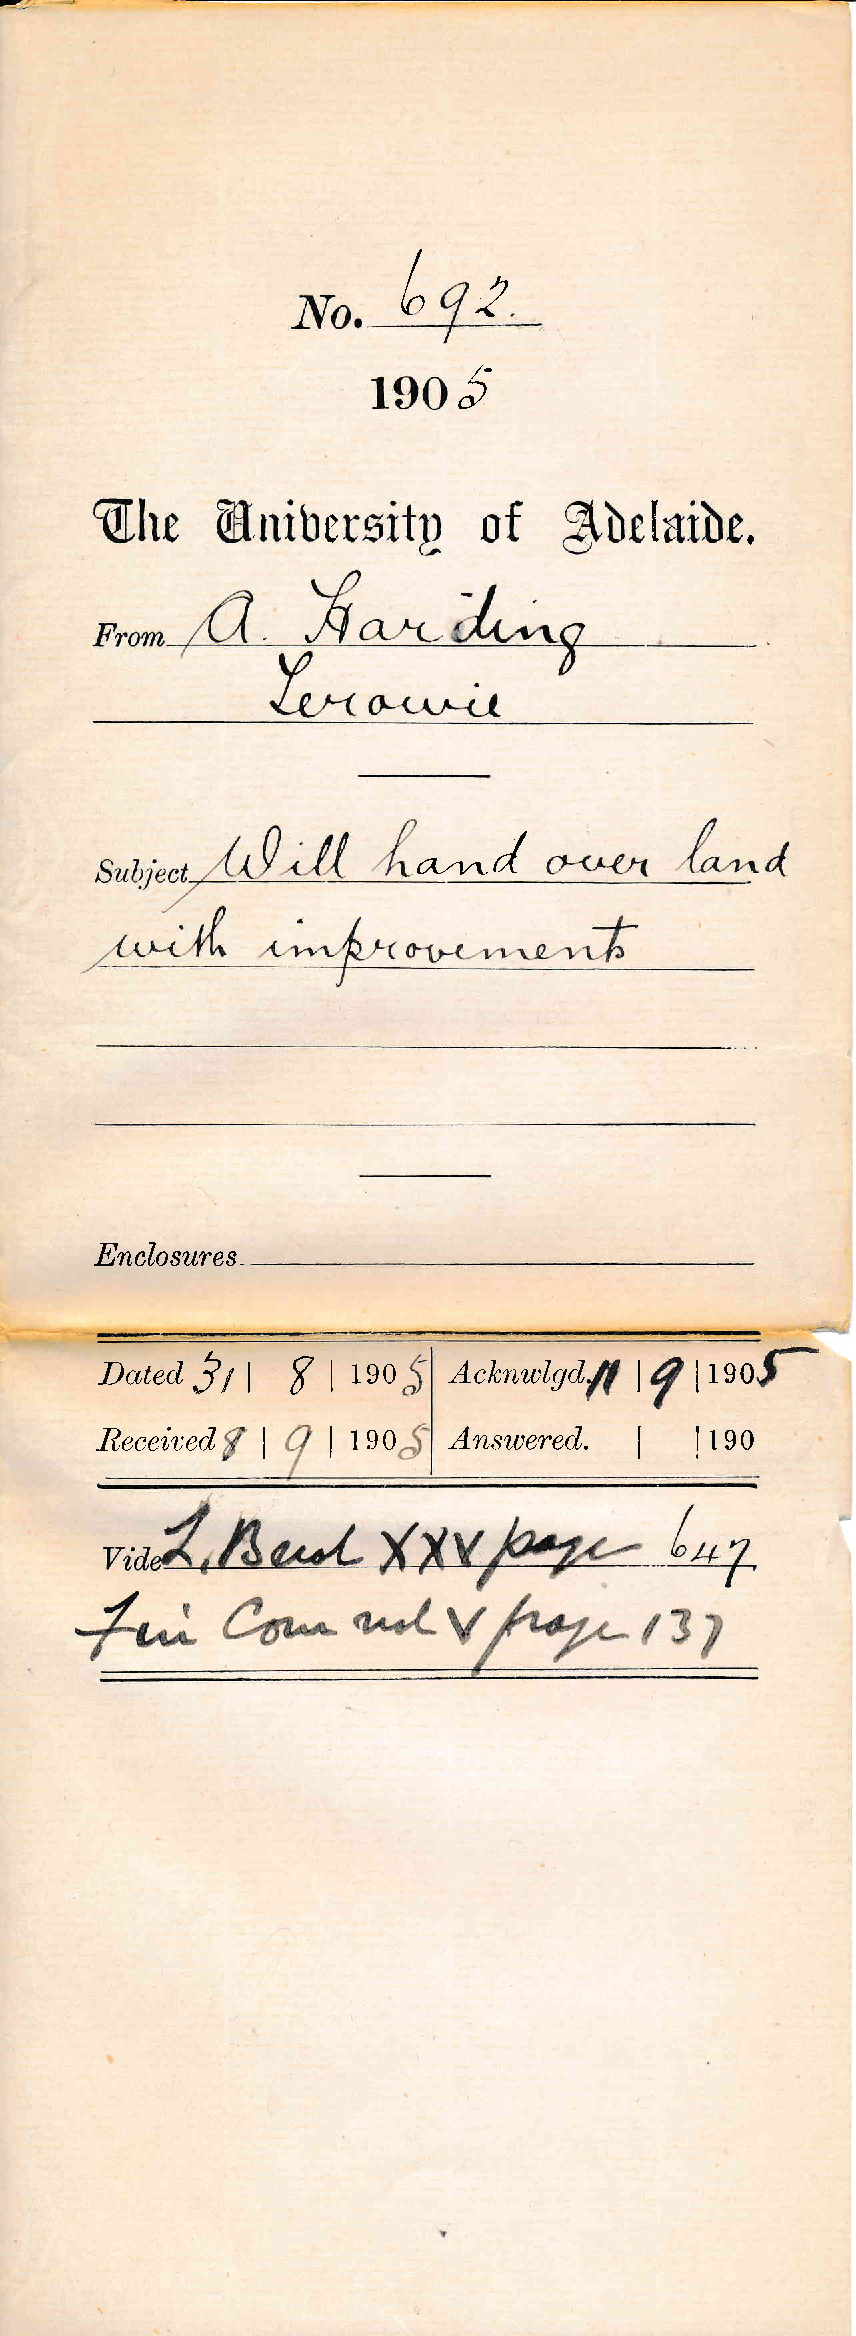 No. 692.
1905
The University of Adelaide.
From A. Harding
Terowie
Subject Will hand over land
with improvements
Enclosures
Dated 31 | 8 | 1905 Acknwlgd. 11 | 9 | 1905
Received 8 | 9 | 1905 Answered. | | 190
Vide L. Book XXV page 647
Fin Com vol V page 137